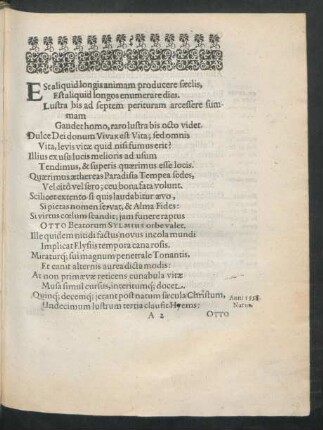 ESt aliquid longis animam producere sæclis,
Est aliquid longos enumerare dies.
Lustra bis ad septem perituram arcessere sum-
mam
Gaudet homo, raro lustra bis octo videt.
Dulce Dei donum Vivax est Vita; sed omnis
Vita, levis vitæ quid nisi fumus erit?
Illius ex usu lucis melioris ad usum
Tendimus, & superis quærimus esse locis.
Quærimus æthereas Paradisia Tempea sedes,
Vel citò vel serò; ceu bona fata volunt.
Scilicet extento si quis laudabitur ævo,
Si pietas nomen servat, & Alma Fides:
Si virtus cœlum scandit; jam funere raptus
OTTO Beatorum SYLVIUS orbe valet,
Ille quidem nitidi factus novus incola mundi
Implicat Elysiis tempora cana rosis.
Miraturq; sui magnum penetrale Tonantis,
Et canit alternis aurea dicta modis:
At non primævæ reticens cunabula vitæ
Musa simul cursus, interitumq; docet.
Quinq; decemq; ierant post natum sæcula Christum,
Undecimum lustrum tertia clausit Hyems:
Ann: 1558.
Natus.
A 2
OTTO